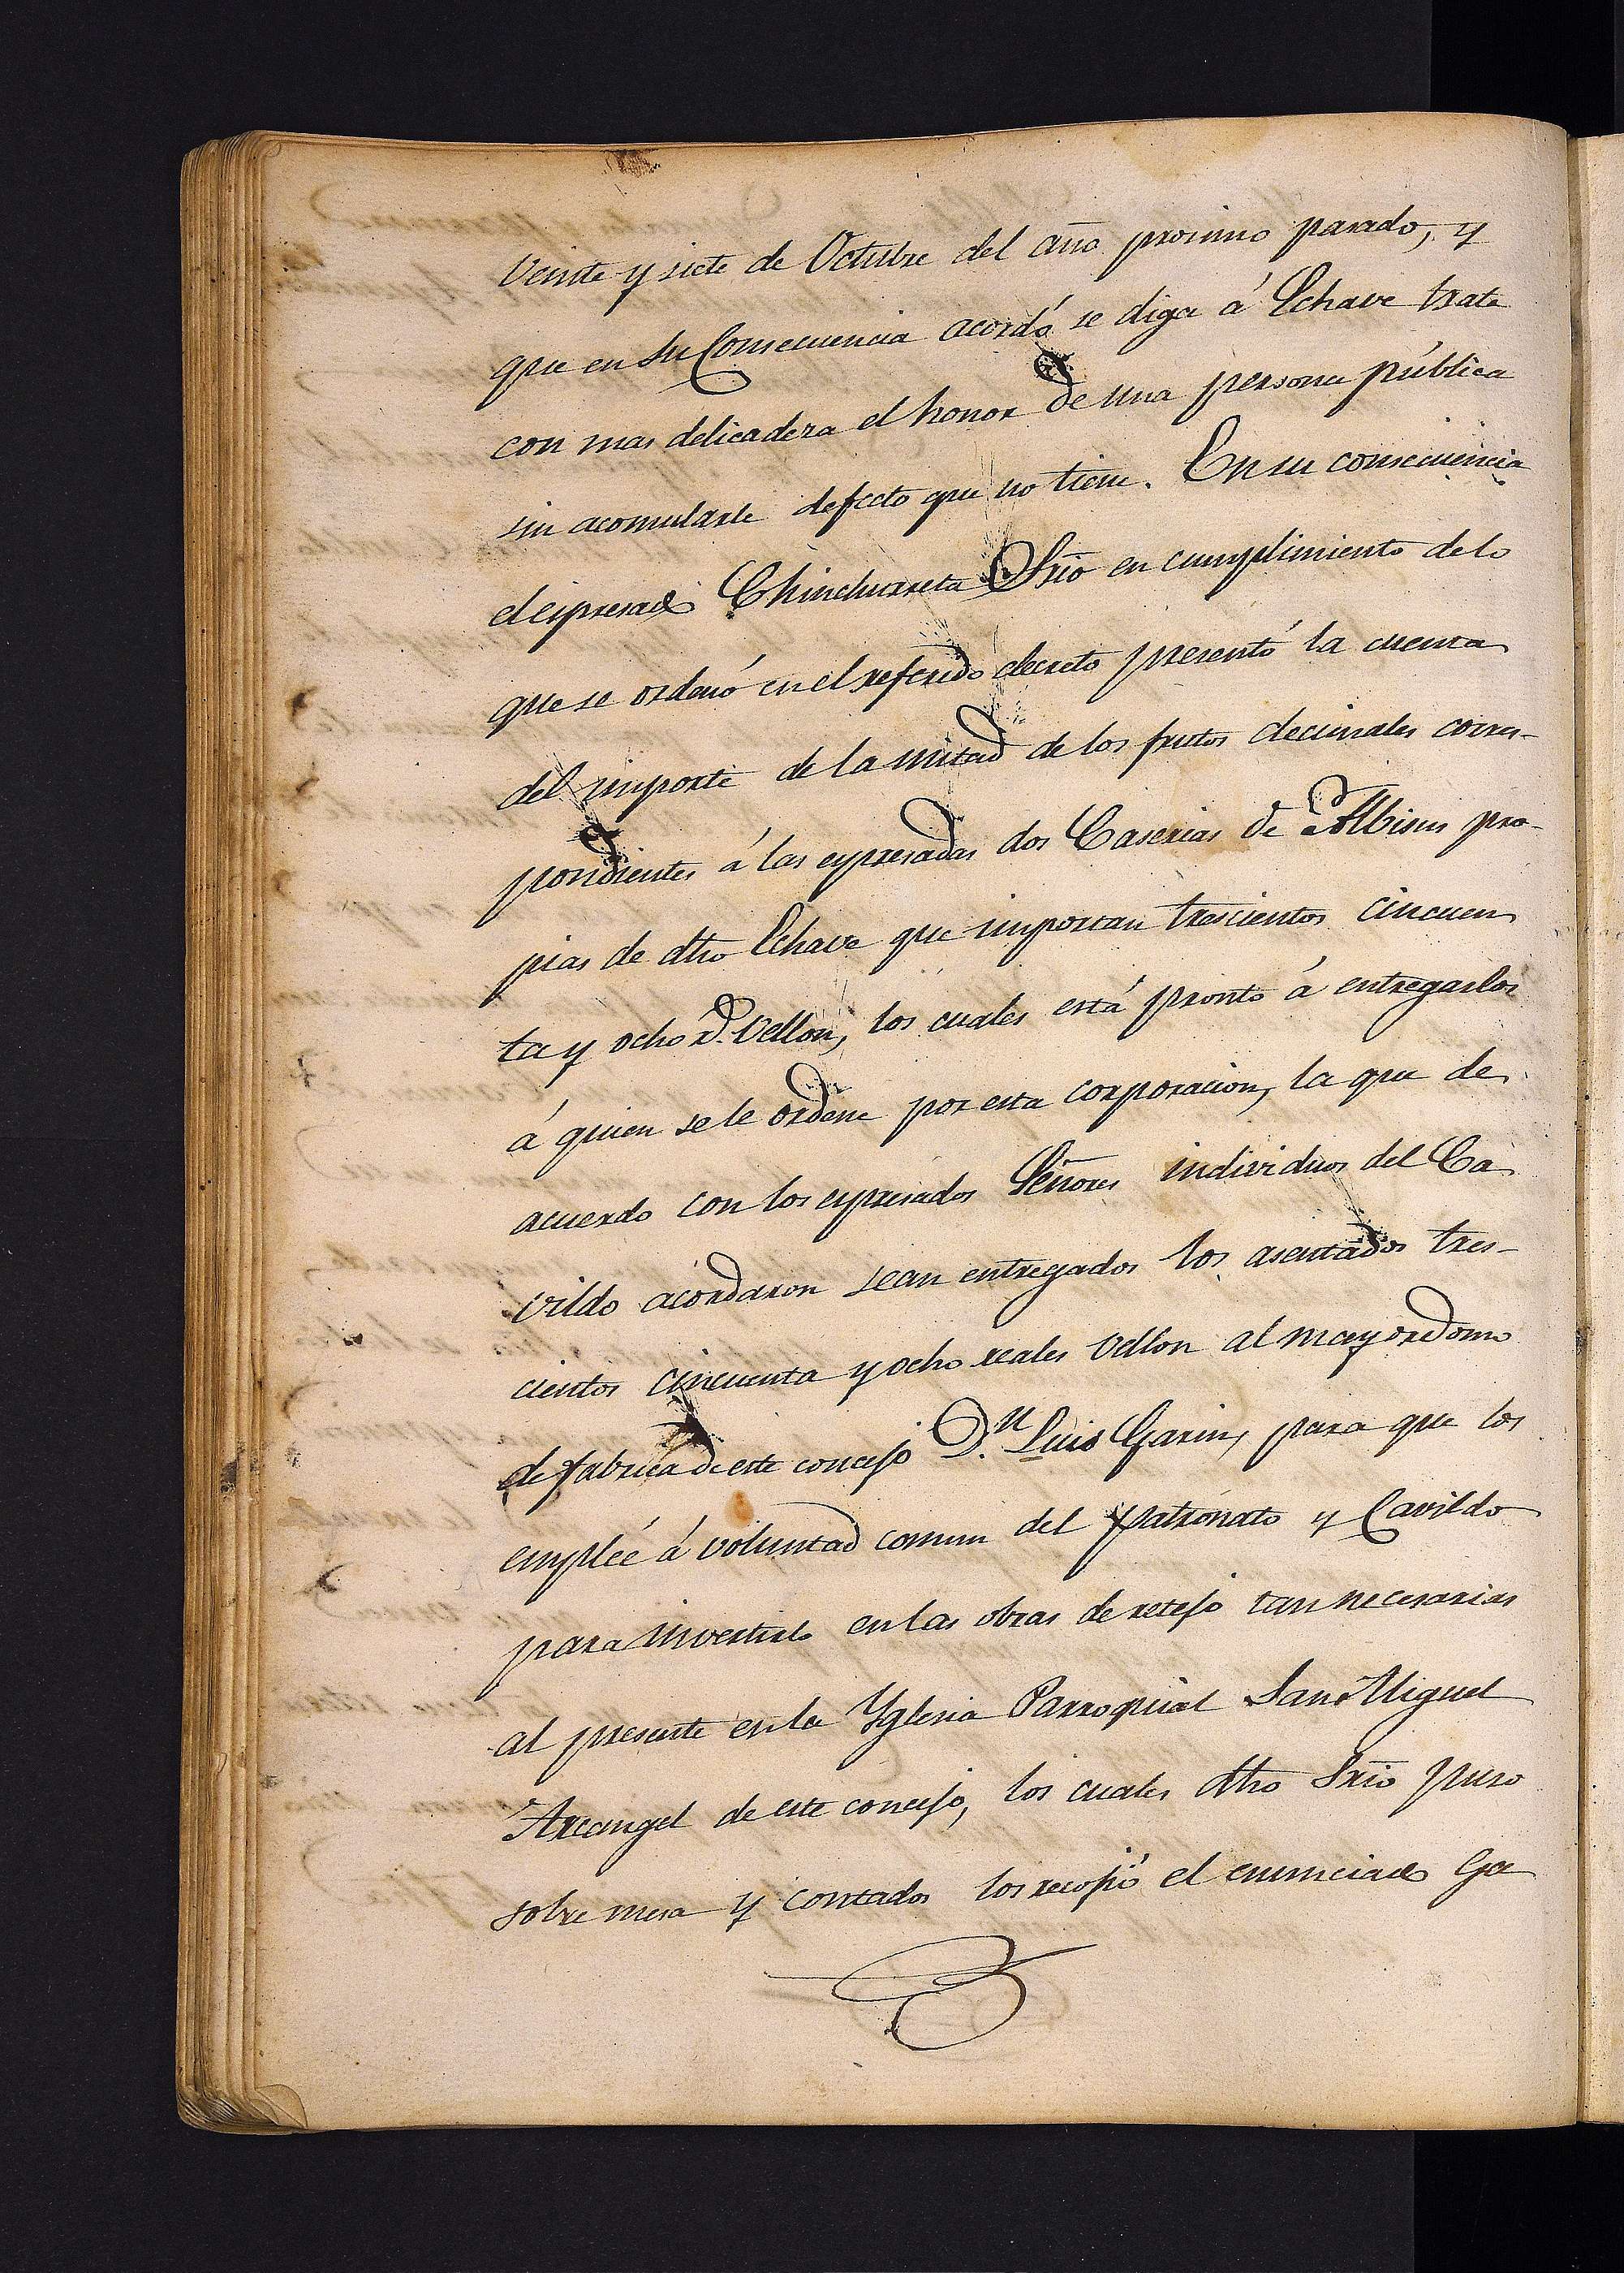 Veinte y siete de Octubre del año procsimo pasado, y
que en su Consecuencia acordó se diga á Echave trate
con mas delicadeza el honor de una persona pública
sin acomularle defecto que no tiene. En su consecuencia
el espresado Chinchurreta Srio en cumplimiento de lo
que se ordenó en el referido decreto presentó la cuenta
del importe de la mitad de los frutos decimales corres-
pondientes á las espresadas dos Caserias de Albisu pro-
pias de dho Echave que importan trescientos cincuen
ta y ocho rs. Vellon, los cuales está pronto á entregarlos
á quien se le ordene por esta corporacion, la que de
acuerdo con los espresados Señores individuos del Ca
vildo acordaron sean entregados los asentados tres-
cientos cincuenta y ocho reales vellon al mayordomo
de fabrica de este concejo D.n Luis Garin, para que los
empleé á voluntad comun del patronato y Cavildo
para invertirlo en las obras de retejo tan necesarias
al presente en la Yglesia Parroquial San Miguel
Arcangel de este concejo, los cuales dho Srio puso
sobre mesa y contados los recojió el enunciado Ga